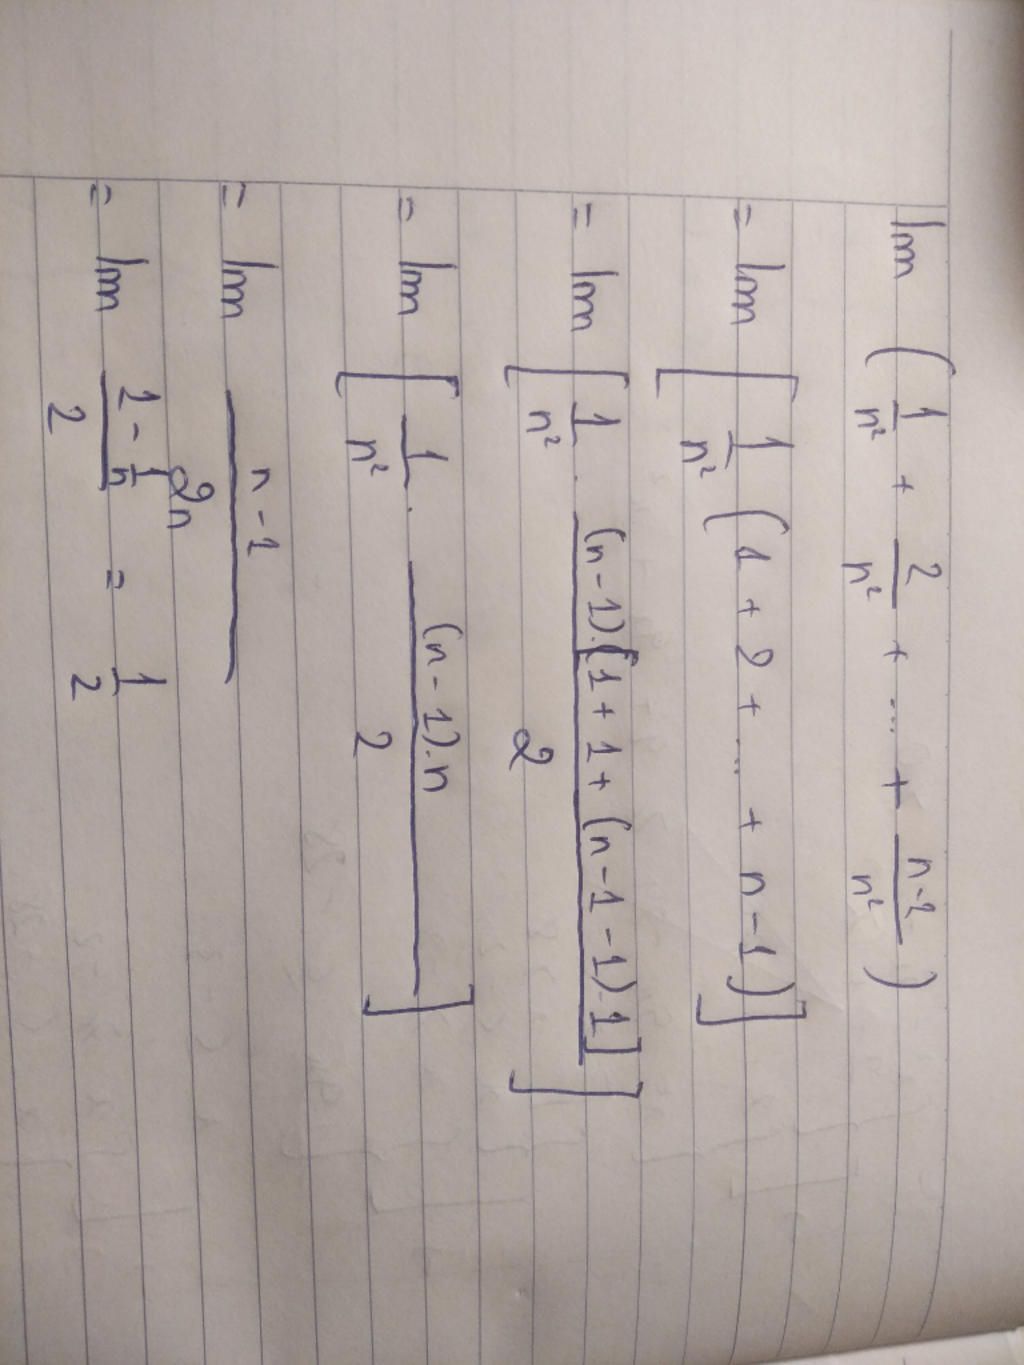 lim ( 1/n² + 2/n² + ... + n-1/n² )
= lim [ 1/n² ( 1 + 2 + ... + n - 1 ) ]
= lim [ 1/n² . (n-1).[1 + 1 + (n-1-1).1] / 2 ]
= lim [ 1/n² . (n-1).n / 2 ]
= lim n-1 / 2n
= lim 1 - 1/n / 2 = 1/2